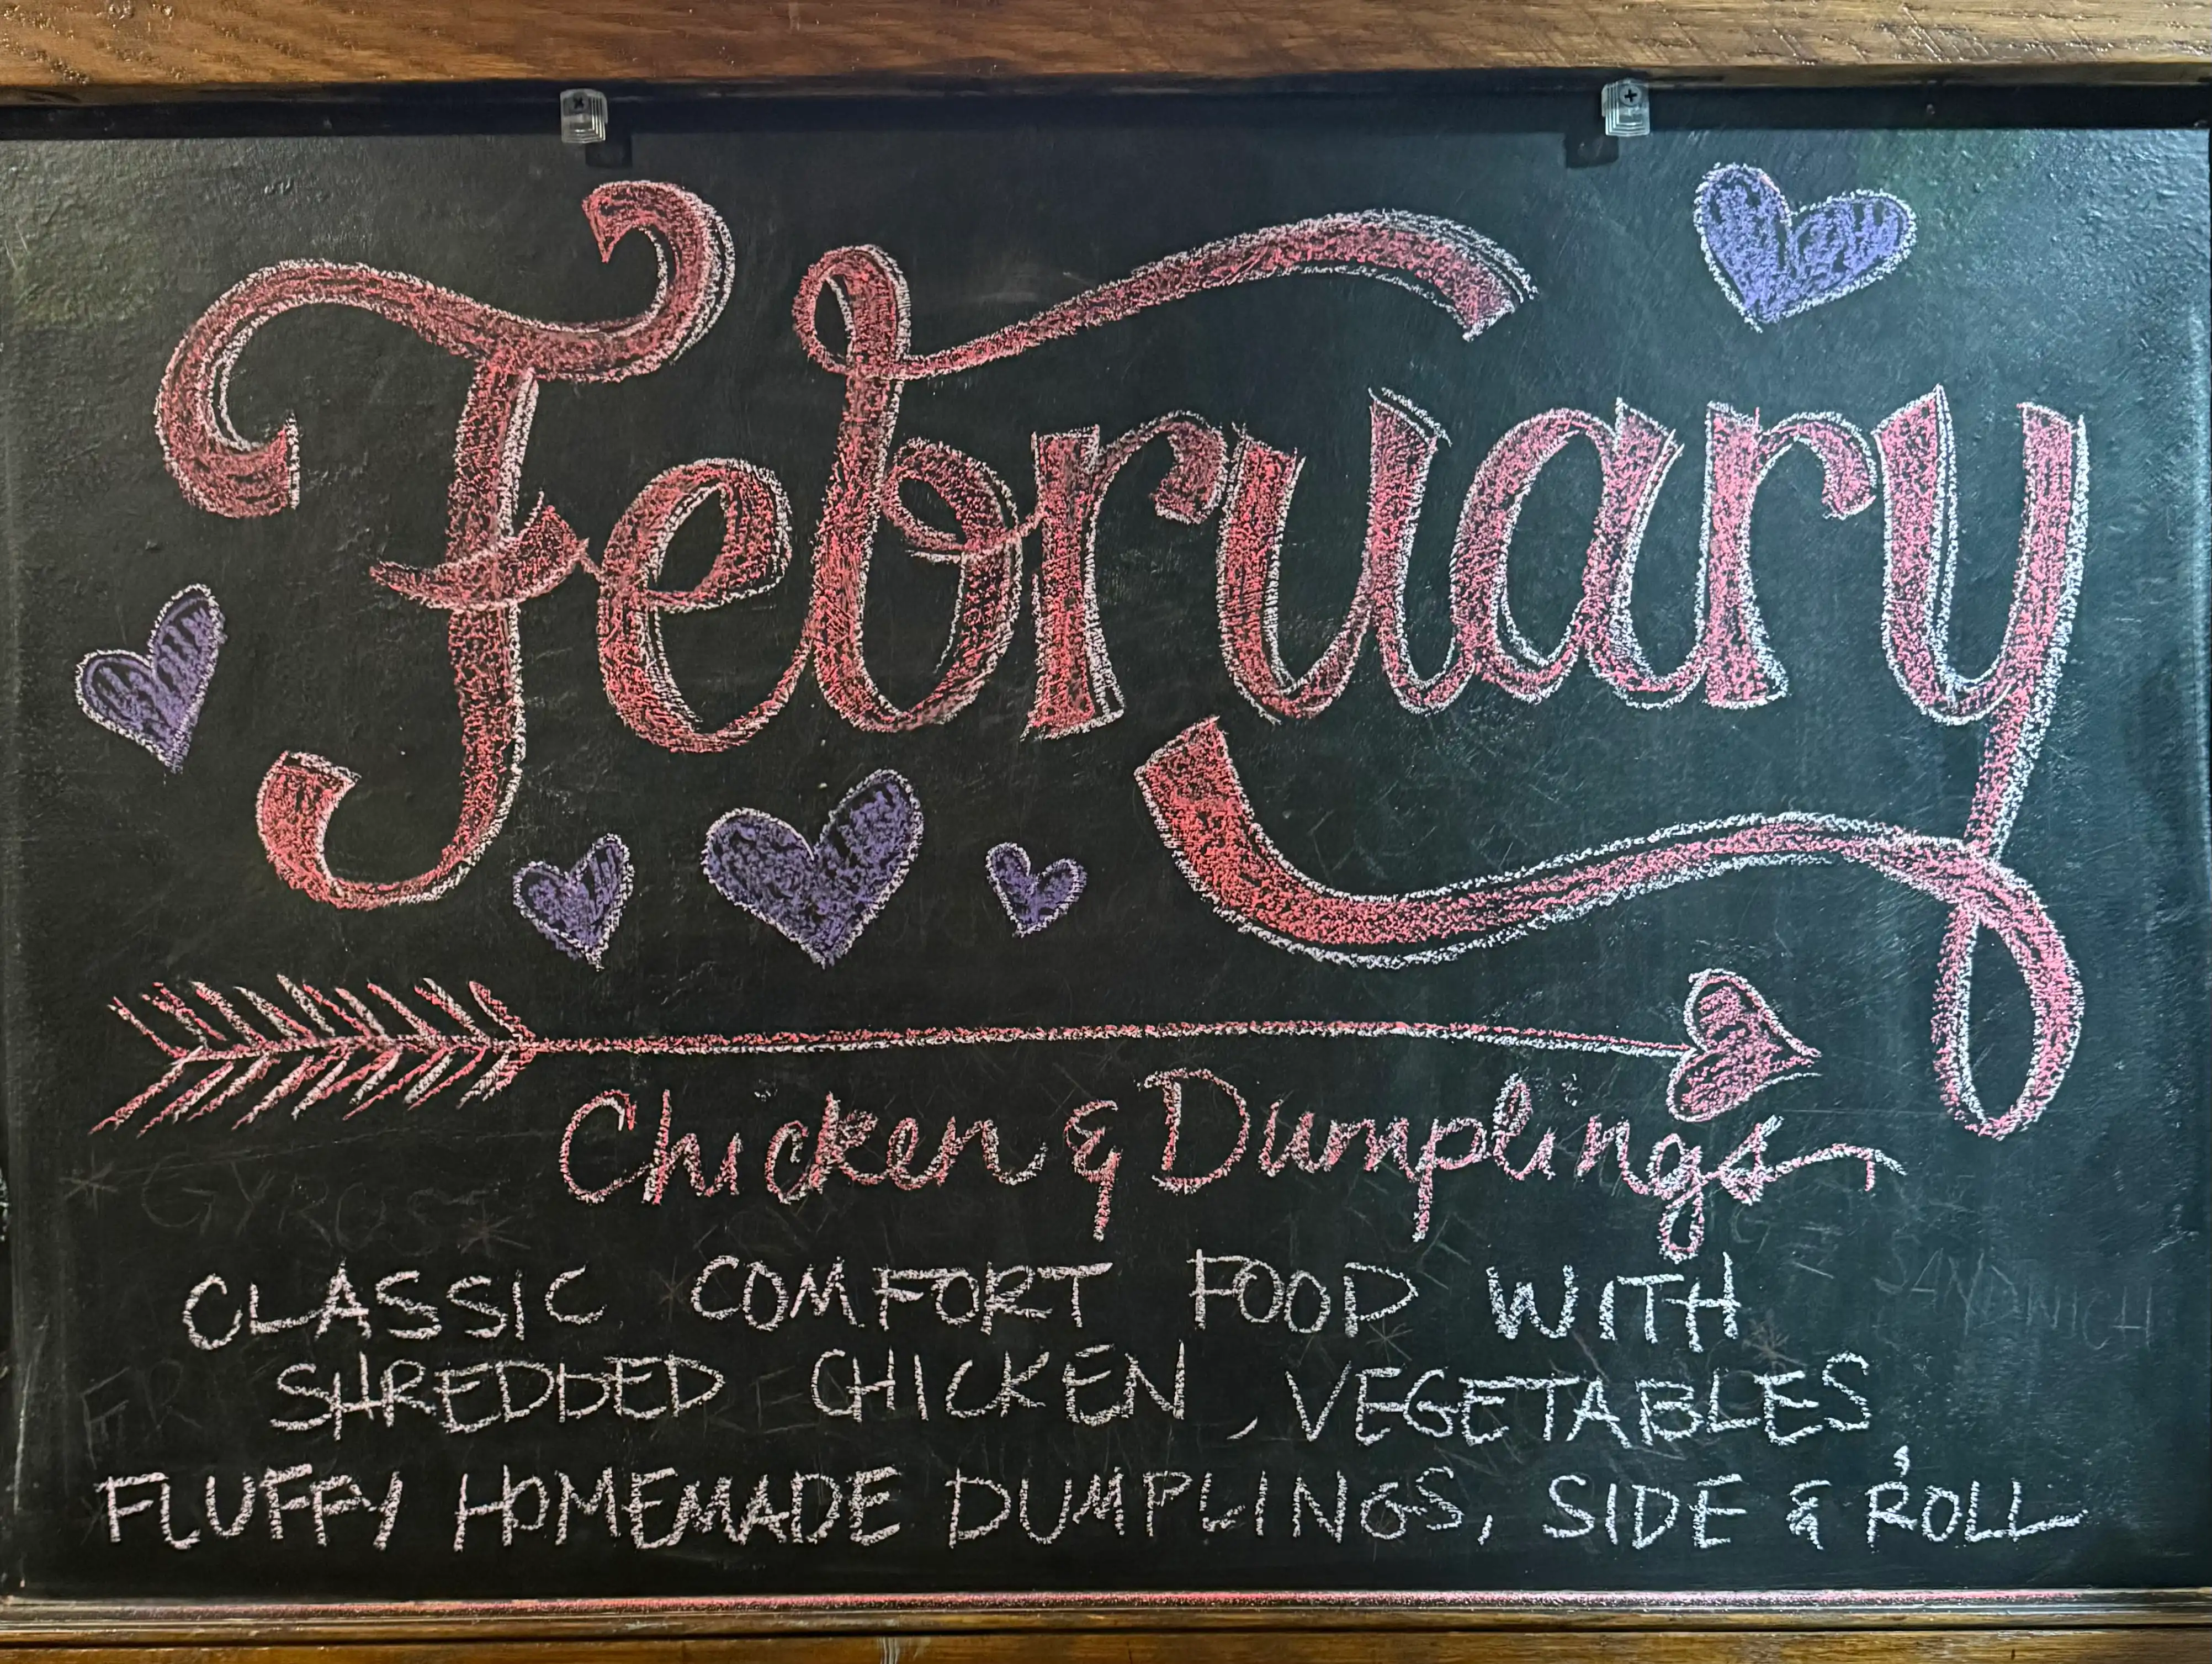 February
Chicken & Dumplings
CLASSIC COMFORT FOOD WITH
SHREDDED CHICKEN, VEGETABLES,
FLUFFY HOMEMADE DUMPLINGS, SIDE & ROLL
* GYROS *
SANDWICH